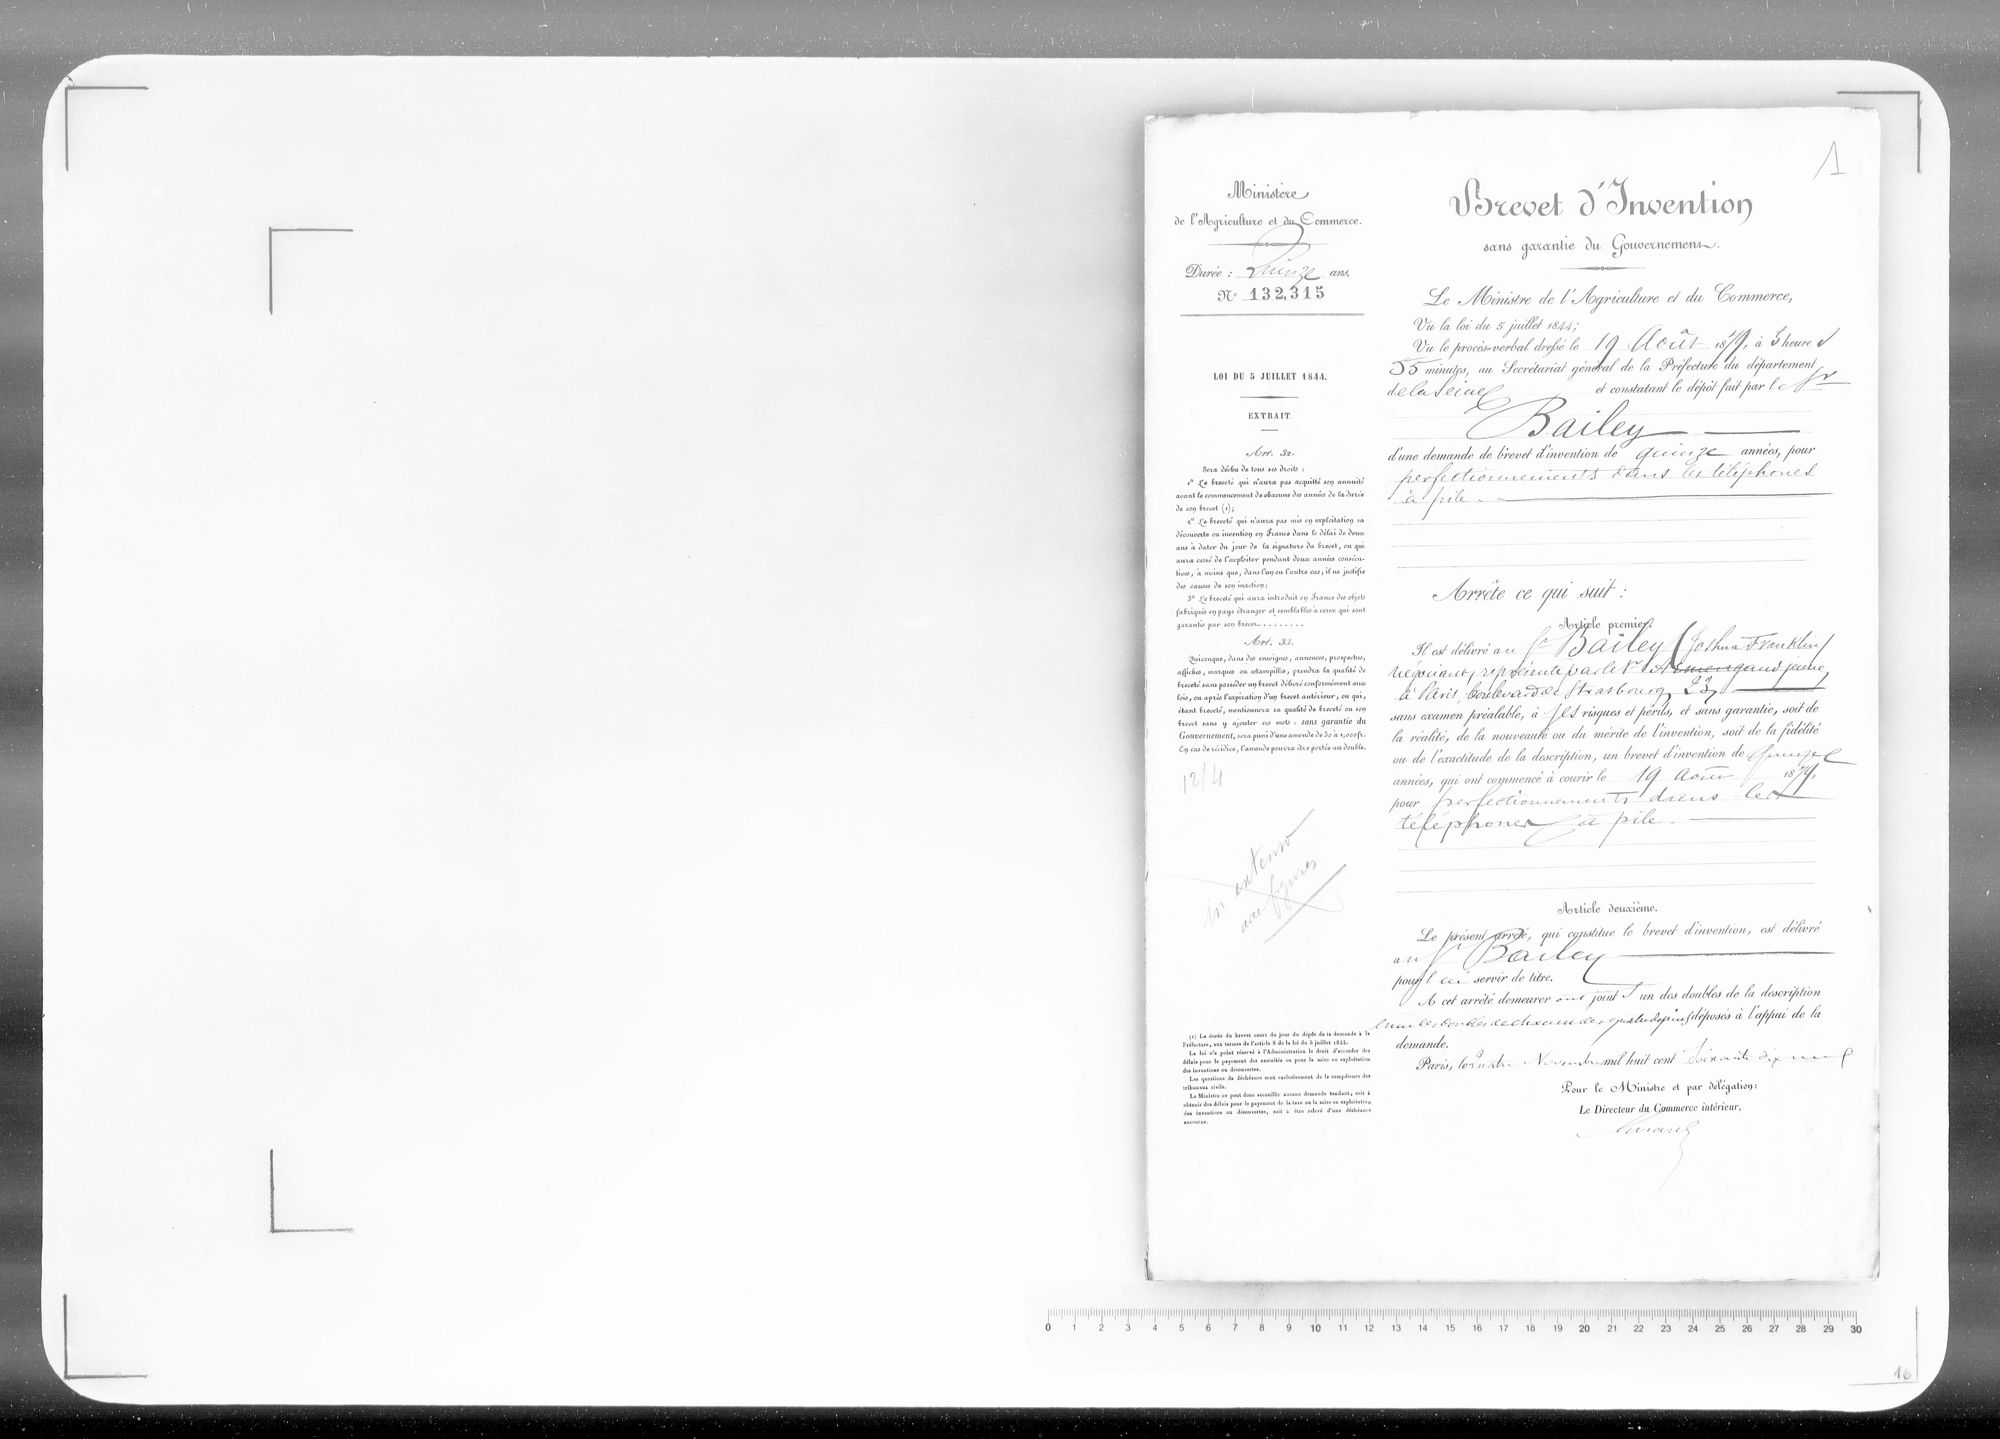 1
Ministère
de l'Agriculture et du Commerce.
Durée : Quinze ans.
N° 132,315
LOI DU 5 JUILLET 1844.
EXTRAIT.
Art. 32.
Sera déchu de tous ses droits :
1° Le breveté qui n'aura pas acquitté son annuité
avant le commencement de chacune des années de la durée
de son brevet (1);
2° Le breveté qui n'aura pas mis en exploitation sa
découverte ou invention en France dans le délai de deux
ans à dater du jour de la signature du brevet, ou qui
aura cessé de l'exploiter pendant deux années consécu-
tives, à moins que, dans l'un ou l'autre cas, il ne justifie
des causes de son inaction;
3° Le breveté qui aura introduit en France des objets
fabriqués en pays étranger et semblables à ceux qui sont
garantis par son brevet........
Art. 33.
Quiconque, dans des enseignes, annonces, prospectus,
affiches, marques ou estampilles, prendra la qualité de
breveté sans posséder un brevet délivré conformément aux
lois, ou après l'expiration d'un brevet antérieur, ou qui,
étant breveté, mentionnera sa qualité de breveté ou son
brevet sans y ajouter ces mots : sans garantie du
Gouvernement, sera puni d'une amende de 50 à 1,000 fr.
En cas de récidive, l'amende pourra être portée au double.
12/4
in extenso
avec figures
(1) La durée du brevet court du jour du dépôt de la demande à la
Préfecture, aux termes de l'article 8 de la loi du 5 juillet 1844.
La loi n'a point réservé à l'Administration le droit d'accorder des
délais pour le payement des annuités ou pour la mise en exploitation
des inventions ou découvertes.
Les questions de déchéance sont exclusivement de la compétence des
tribunaux civils.
Le Ministre ne peut donc accueillir aucune demande tendant, soit à
obtenir des délais pour le payement de la taxe ou la mise en exploitation
des inventions ou découvertes, soit à être relevé d'une déchéance
encourue.
Brevet d'Invention
sans garantie du Gouvernement.
Le Ministre de l'Agriculture et du Commerce,
Vu la loi du 5 juillet 1844;
Vu le procès-verbal dressé le 19 Août 1879, à 3 heures
55 minutes, au Secrétariat général de la Préfecture du département
de la Seine et constatant le dépôt fait par le Sr
Bailey
d'une demande de brevet d'invention de quinze années, pour
perfectionnements dans les téléphones
à pile.
Arrête ce qui suit :
Article premier.
Il est délivré au Sr Bailey (Joshua Franklin)
négociant, représenté par le Sr Armengaud jeune,
à Paris, boulevard de Strasbourg, 23,
sans examen préalable, à ses risques et périls, et sans garantie, soit de
la réalité, de la nouveauté ou du mérite de l'invention, soit de la fidélité
ou de l'exactitude de la description, un brevet d'invention de quinze
années, qui ont commencé à courir le 19 Août 1879,
pour perfectionnements dans les
téléphones à pile.
Article deuxième.
Le présent arrêté, qui constitue le brevet d'invention, est délivré
au Sr Bailey
pour lui servir de titre.
A cet arrêté demeurer ont joint s un des doubles de la description
déposés à l'appui de la
demande.
Paris, le quatre Novembre mil huit cent soixante dix neuf
Pour le Ministre et par délégation:
Le Directeur du Commerce intérieur,
0 1 2 3 4 5 6 7 8 9 10 11 12 13 14 15 16 17 18 19 20 21 22 23 24 25 26 27 28 29 30
16